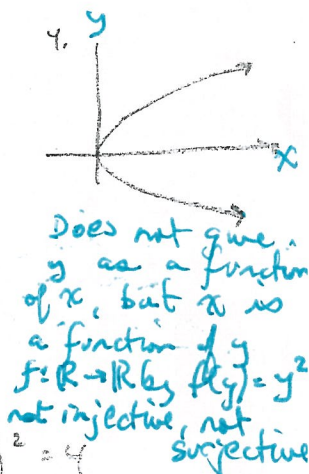 4.
y
x
Does not give
y as a function
of x, but x is
a function of y
f: ℝ → ℝ by f(y) = y²
not injective, not
surjective
² = 4